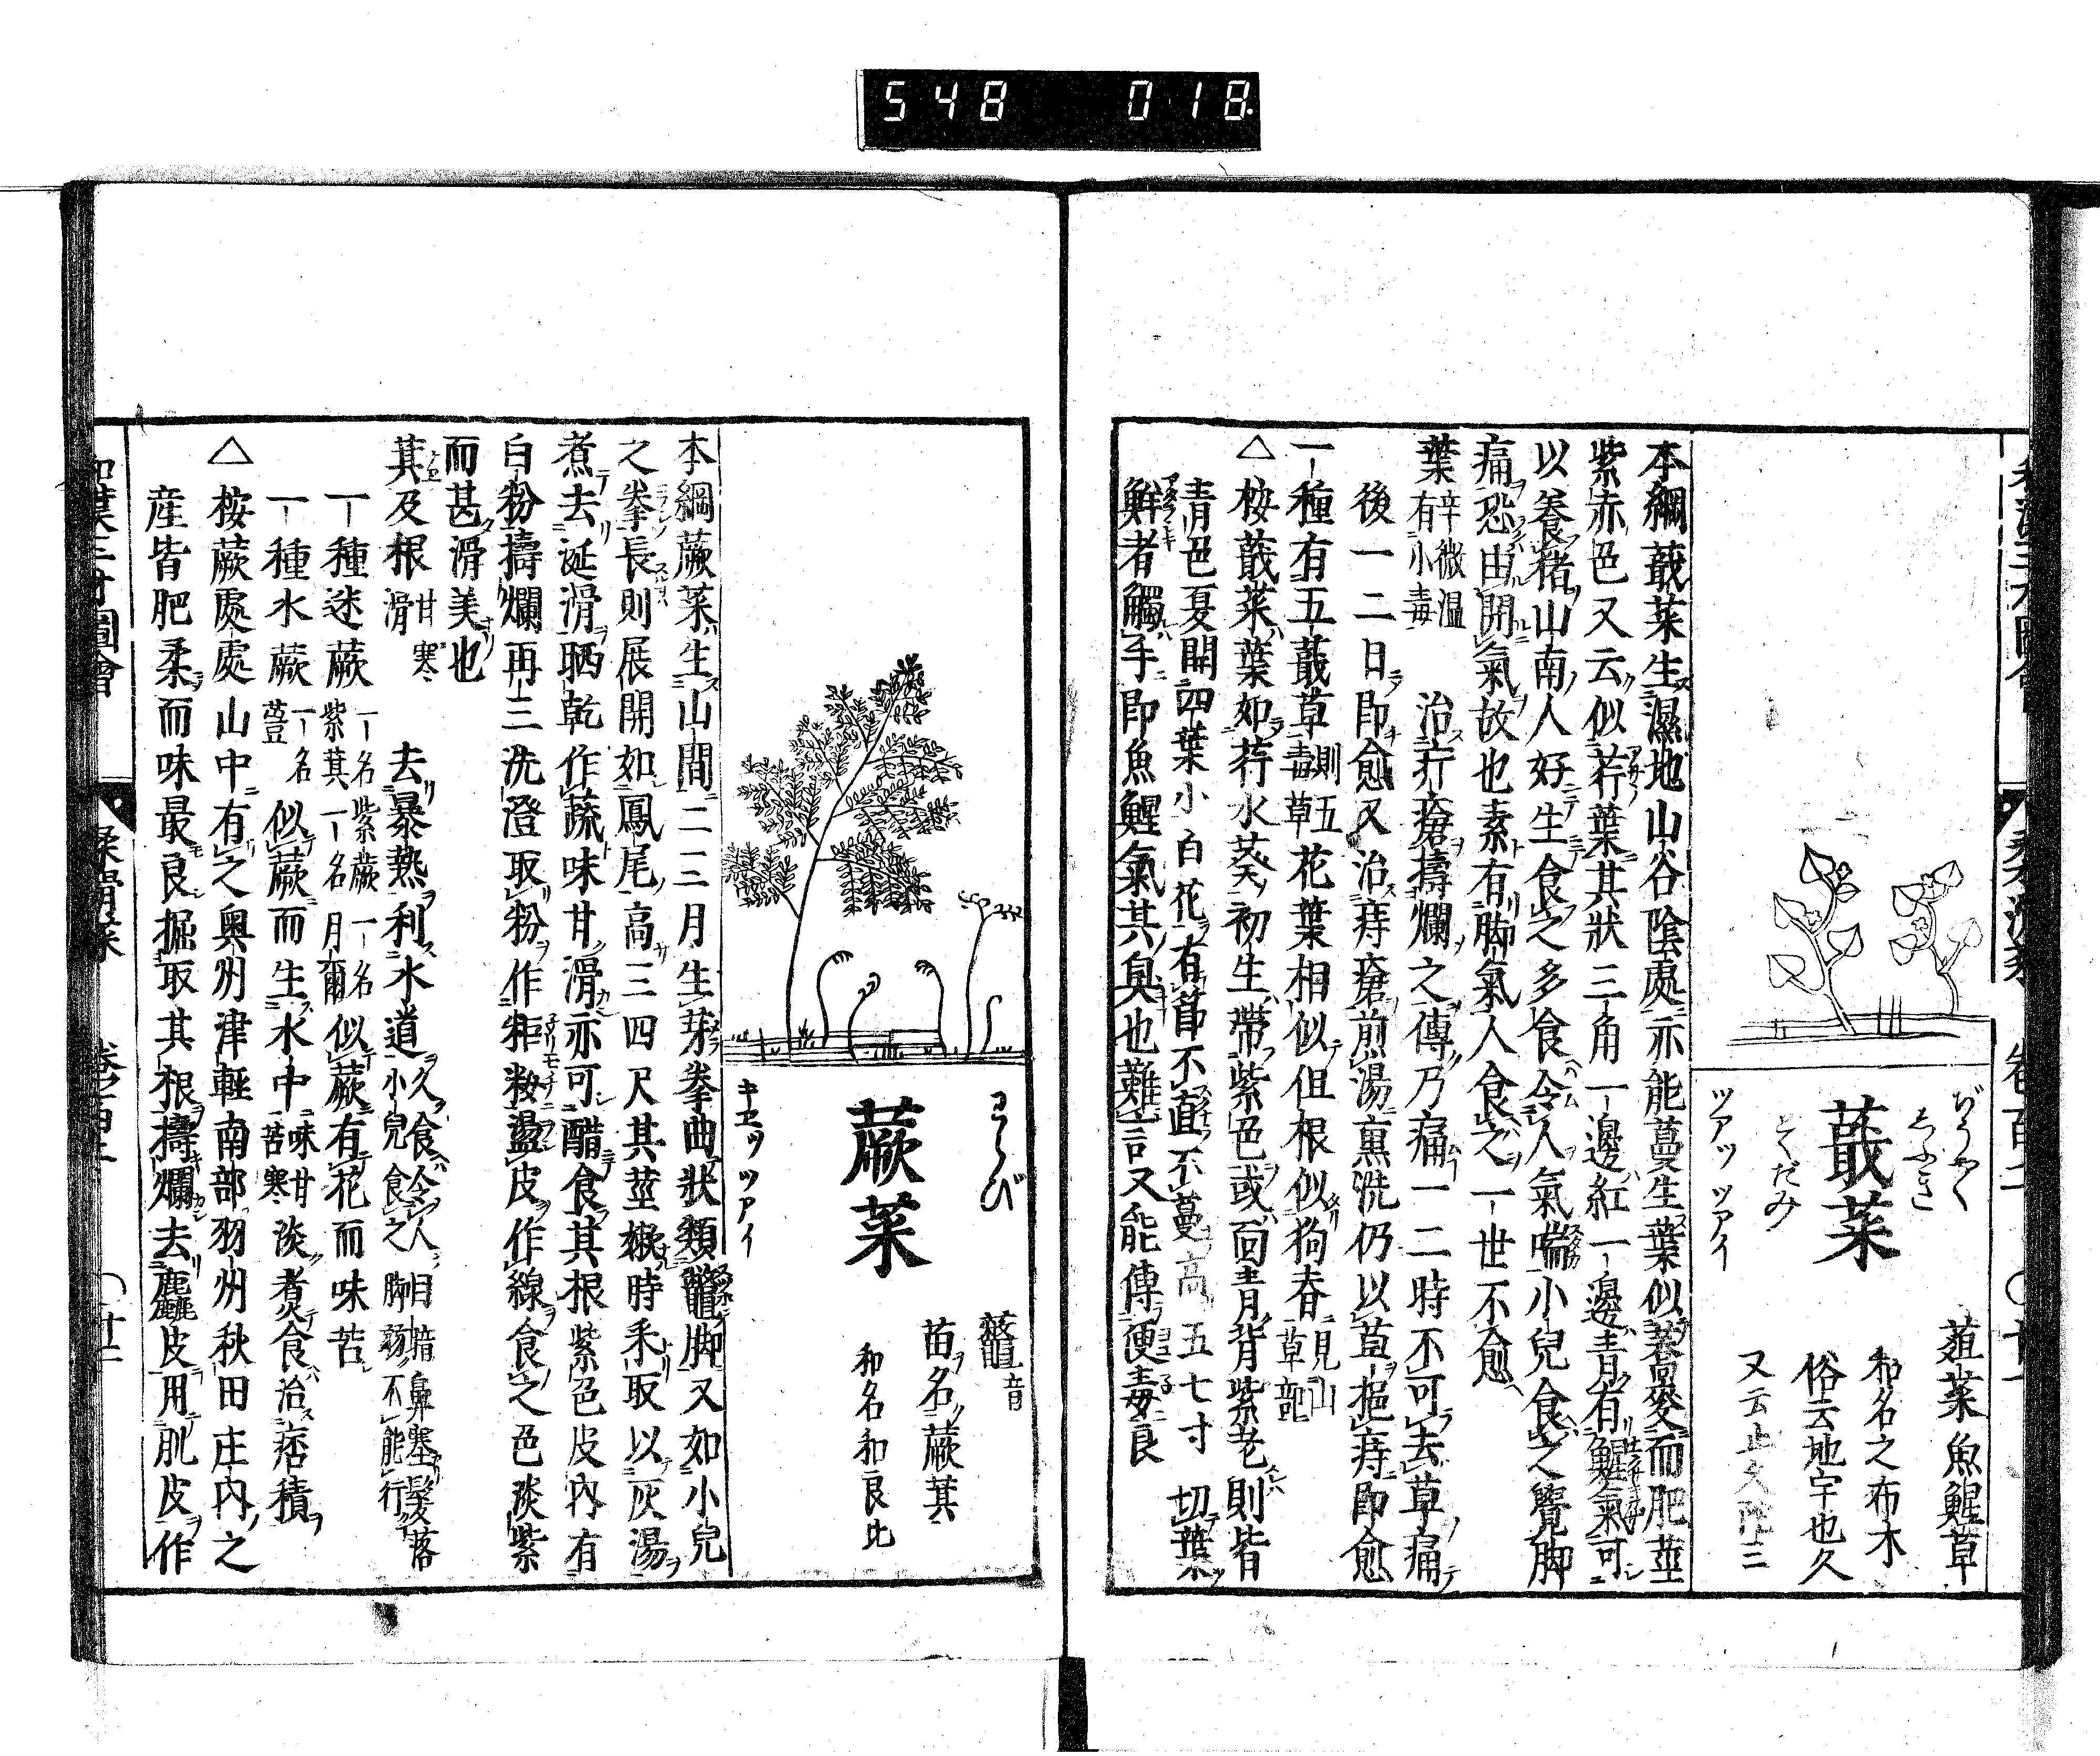 548 018
ぢうやく
しぶき
蕺菜
どくだみ
ツアッ ツアイ
葅菜 魚鯹草
和名之布木
俗云地宇也久
又云止久陀三
本綱蕺菜生濕地山谷陰處亦能蔓生葉似蕎麥而肥莖
紫赤色又云似荇葉其狀三角一邊紅一邊青有鯹氣可
以養猪山南人好生食之多食令人氣喘小兒食之覺脚
痛恐由閉氣故也素有脚氣人食之一世不愈
葉 辛微溫有小毒 治疔瘡擣爛之傅乃痛一二時不可去草痛
後一二日即愈又治痔瘡煎湯熏洗仍以葅挹痔即愈
一種有五蕺草 則五毒草 花葉相似但根似狗脊 見山草部
△桉蕺菜葉如荇水葵初生帶紫色或面青背紫老則皆
青色夏開四葉小白花有莖不直不蔓高五七寸切葉
鮮者觸手即魚鯹氣其臭也難言又能傅便毒良
わらび
蕨菜
キエッ ツアイ
虌 音
苗名蕨萁
和名和良比
本綱蕨菜生山間二三月生芽拳曲狀類鼈脚又如小兒
之拳長則展開如鳳尾高三四尺其莖嫩時采取以灰湯
煮去涎滑晒乾作蔬味甘滑亦可醋食其根紫色皮內有
白粉擣爛再三洗澄取粉作粔籹盪皮作線食之色淡紫
而甚滑美也
萁及根 甘寒滑 去暴熱利水道 久食令人目暗鼻塞髮落小兒食之脚弱不能行
一種迷蕨 一名紫蕨一名紫萁一名月爾 似蕨有花而味苦
一種水蕨 一名薑 似蕨而生水中 味甘苦寒 淡煮食治痞積
△桉蕨處處山中有之奥州津輕南部羽州秋田庄內之
産皆肥柔而味最良掘取其根擣爛去麤皮用肌皮作
和漢三才圖會 柔滑菜 卷百二